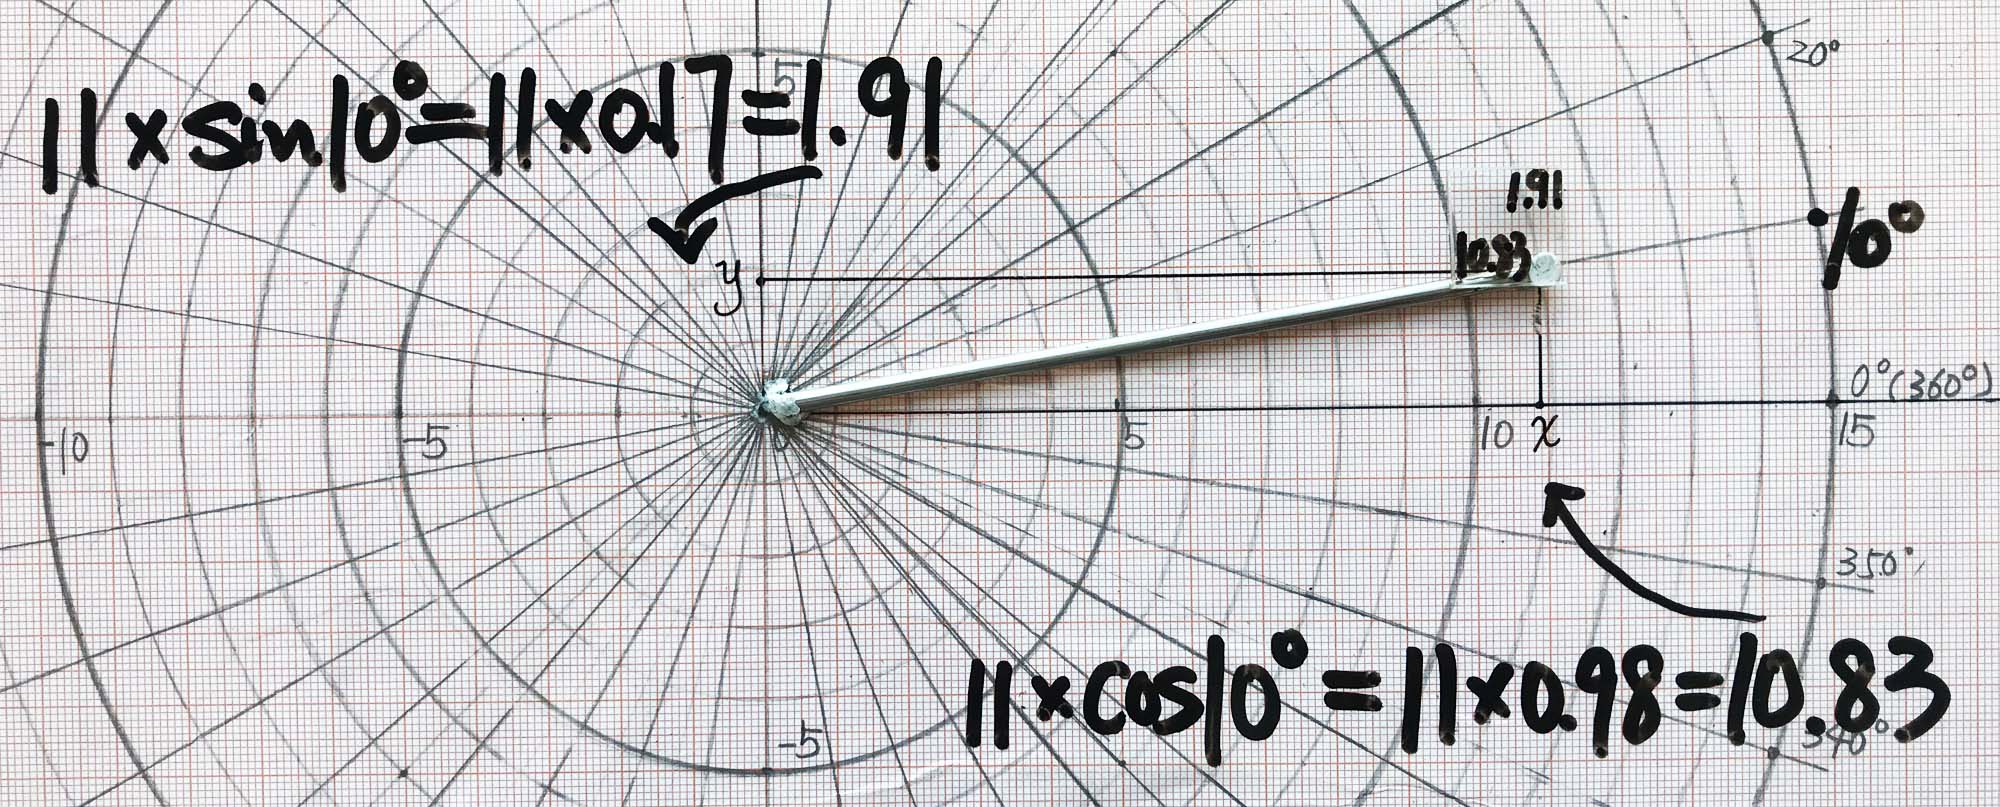 20°
5
11×sin10°=11×0.17=1.91
1.91
10°
10.83
y
0°(360°)
-10
-5
0
5
10
x
15
350°
11×cos10°=11×0.98=10.83
-5
340°